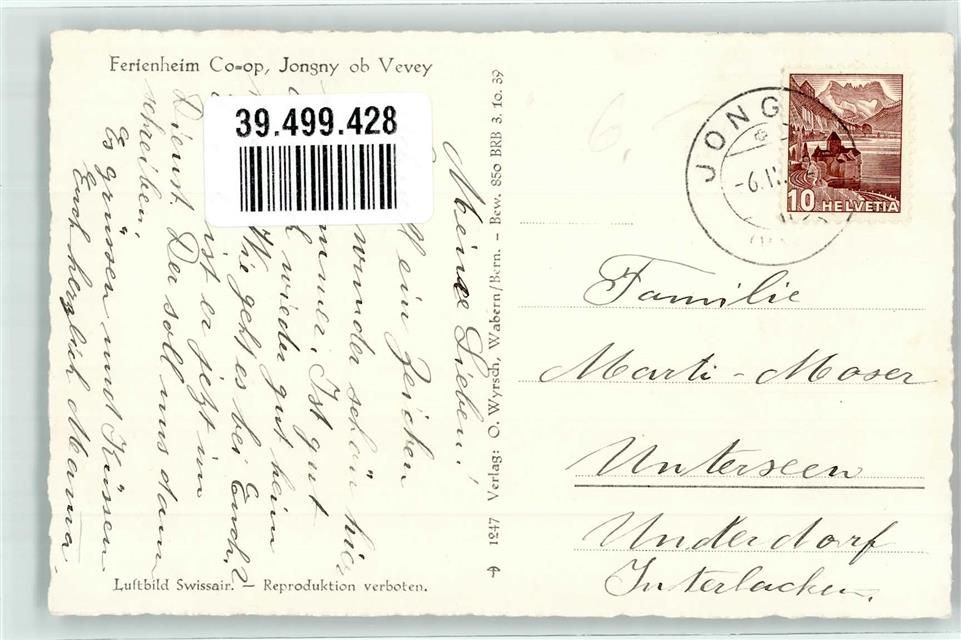 Ferienheim Co=op, Jongny ob Vevey
39.499.428
Meine Lieben!
ein Zeichen
wunderschön hier
immer. Ist gut
wieder gut heim
Wie geht es bei Euch?
ist er jetzt im
Dienst Der soll uns dann
schreiben.
Es grüssen und Küssen
Euch herzlich Mama.
Luftbild Swissair. – Reproduktion verboten.
1247 Verlag: O. Wyrsch, Wabern/Bern. – Bew. 850 BRB 3. 10. 39
JONG
-6.I
10 HELVETIA
Familie
Marti-Moser
Unterseen
Underdorf
Interlacken.